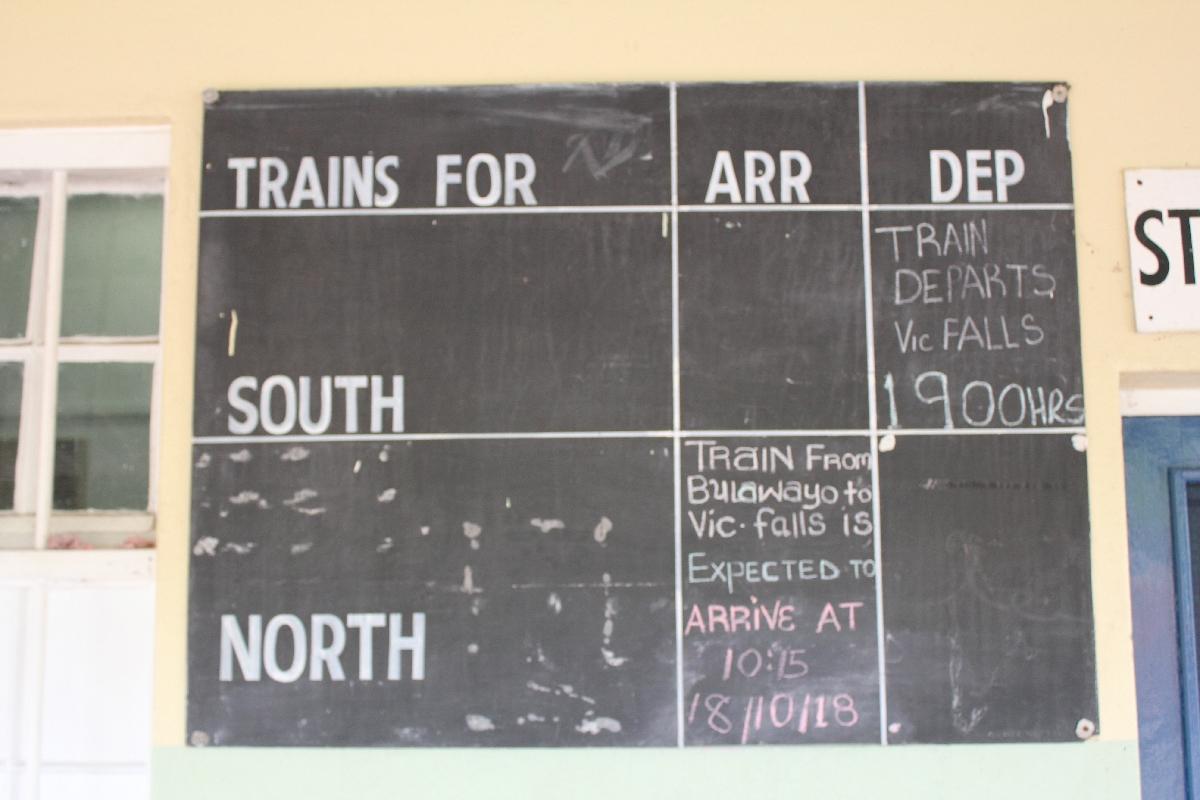 TRAINS FOR ARR DEP
TRAIN
DEPARTS
Vic FALLS
SOUTH 1900HRS
TRAIN FROM
Bulawayo to
Vic. falls is
EXPECTED TO
ARRIVE AT
NORTH
10:15
18/10/18
ST